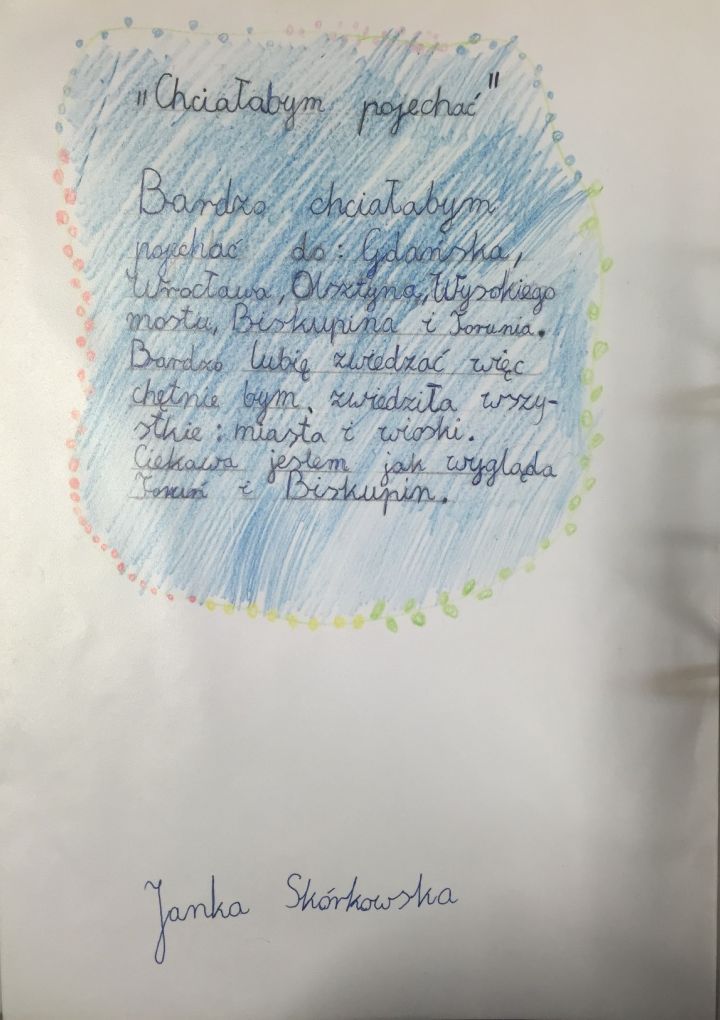 „Chciałabym pojechać"
Bardzo chciałabym
pojechać do: Gdańska,
Wrocława, Olsztyna, Wysokiego
mostu, Biskupina i Torunia.
Bardzo lubię zwiedzać więc
chętnie bym, zwiedziła wszy-
stkie: miasta i wioski.
Ciekawa jestem jak wygląda
Toruń i Biskupin.
Janka Skórkowska